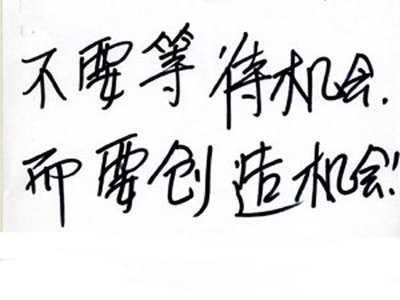 不要等待机会.
而要创造机会!